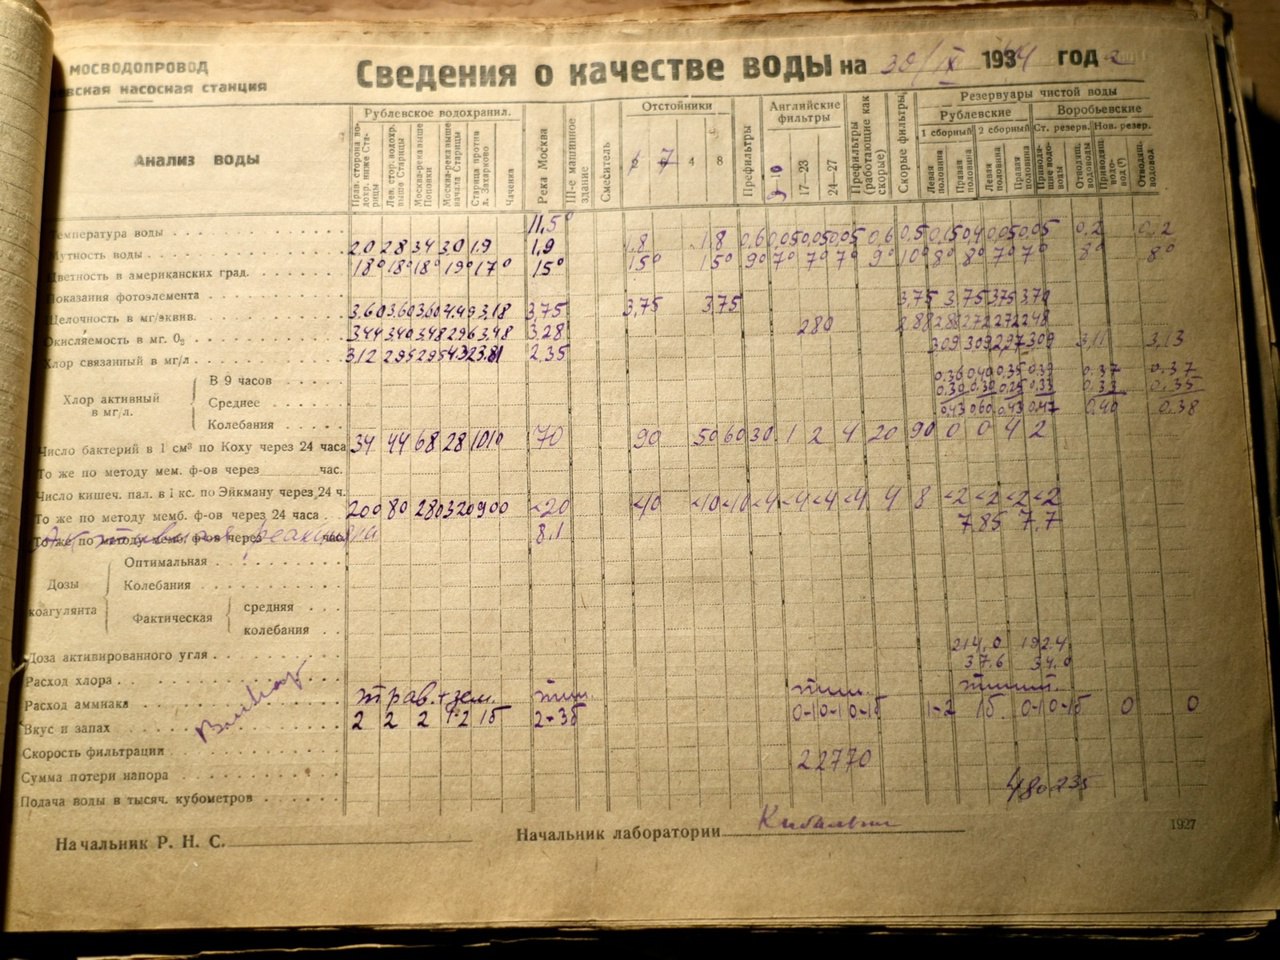 МОСВОДОПРОВОД
вская насосная станция
Сведения о качестве воды на 30/IX 1934 год
Анализ воды
Рублевское водохранил.
Прав. сторона водохр. ниже Старицы
Лев. стор. водохр. выше Старицы
Москва-река выше Поповки
Москва-река выше начала Старицы
Старица против д. Захарково
Чаченка
Река Москва
III-е машинное здание
Смеситель
Отстойники
7 4 8
Префильтры
Английские фильтры
9-10 17-23 24-27
Префильтры (работающие как скорые)
Скорые фильтры
Резервуары чистой воды
Рублевские Воробьевские
1 сборный 2 сборный Ст. резерв. Нов. резер.
Левая половина Правая половина Левая половина Правая половина
Отводящ. водоводы
Отводящ. водовод
Температура воды 11,5°
Мутность воды 20 28 34 30 19 1,9 1,8 1,8 0,6 0,05 0,05 0,05 0,6 0,5 0,15 0,4 0,05 0,05 0,2 0,2
Цветность в американских град. 18° 18° 18° 19° 17° 15° 15° 15° 9° 7° 7° 7° 9° 10° 8° 8° 7° 7° 8° 8°
Показания фотоэлемента
Щелочность в мг/эквив. 3,60 3,60 3,60 4,49 3,18 3,75 3,75 3,75 3,75 3,75 3,75 3,70
Окисляемость в мг. O₂ 3,44 3,40 3,48 2,96 3,48 3,28 280 2,88 2,80 2,72 2,72 2,48
Хлор связанный в мг/л. 3,12 2,95 2,95 4,32 3,81 2,35 3,09 3,09 2,97 3,09 3,11 3,13
Хлор активный в мг/л.
В 9 часов 0,36 0,40 0,35 0,39 0,37 0,37
Среднее 0,30 0,30 0,25 0,33 0,33 0,35
Колебания 0,43 0,60 0,43 0,47 0,40 0,38
Число бактерий в 1 см³ по Коху через 24 часа 34 44 68 28 1010 70 90 50 60 30 1 2 4 20 90 0 0 4 2
То же по методу мем. ф-ов через час.
Число кишеч. пал. в 1 кс. по Эйкману через 24 ч.
То же по методу мемб. ф-ов через 24 часа 200 80 280 320 900 <20 <10 <10 <10 <4 <4 <4 <4 4 8 <2 <2 <2 <2
То же по методу мемб. ф-ов через час. реакция 8,1 7,85 7,7
Дозы коагулянта
Оптимальная
Колебания
Фактическая
средняя
колебания
Доза активированного угля
Расход хлора 214,0 192,4
Расход аммиака 37,6 34,0
Вкус и запах трав.+зем. тин. тин. тинист.
2 2 2 1-2 1б 2-3б 0-1 0-1 0-1б 1-2 1б. 0-1 0-1б 0 0
Скорость фильтрации
Сумма потери напора 22770
Подача воды в тысяч. кубометров 480235
Начальник Р. Н. С. Начальник лаборатории
1927